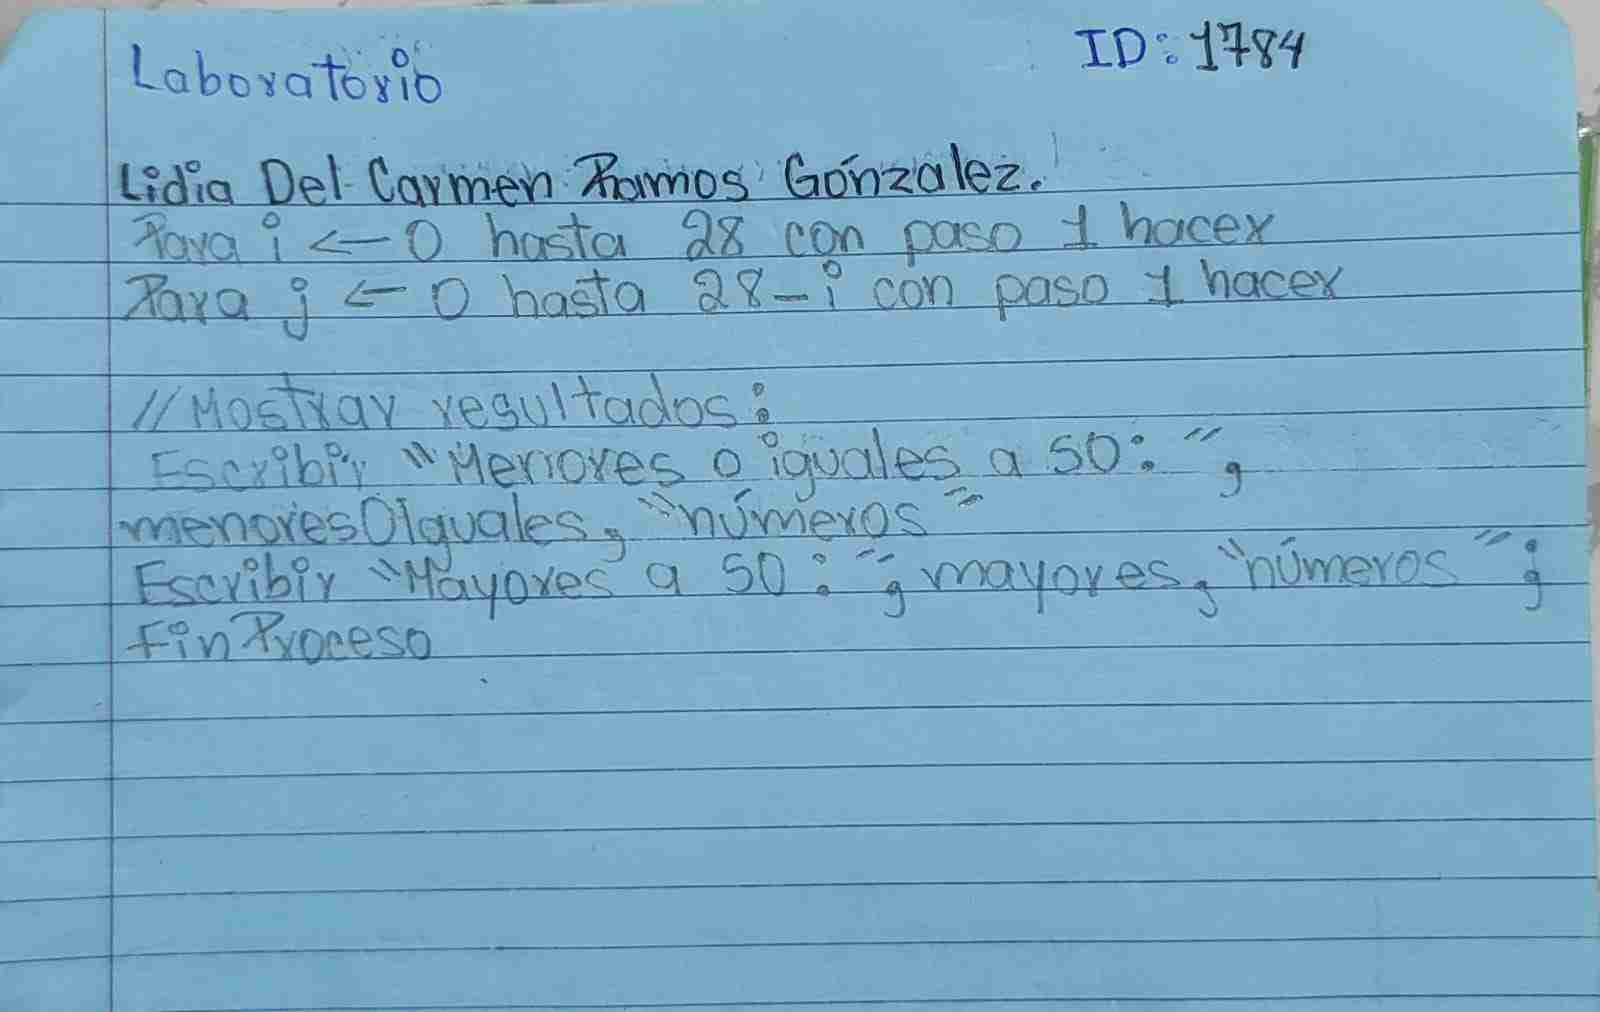 Laboratorio
ID: 1784
Lidia Del Carmen Ramos Gónzalez.
Para i ← 0 hasta 28 con paso 1 hacer
Para j ← 0 hasta 28-i con paso 1 hacer
//Mostrar resultados:
Escribir "Menores o iguales a 50: ",
menoresOIguales, "números"
Escribir "Mayores a 50: ", mayores, "números";
FinProceso